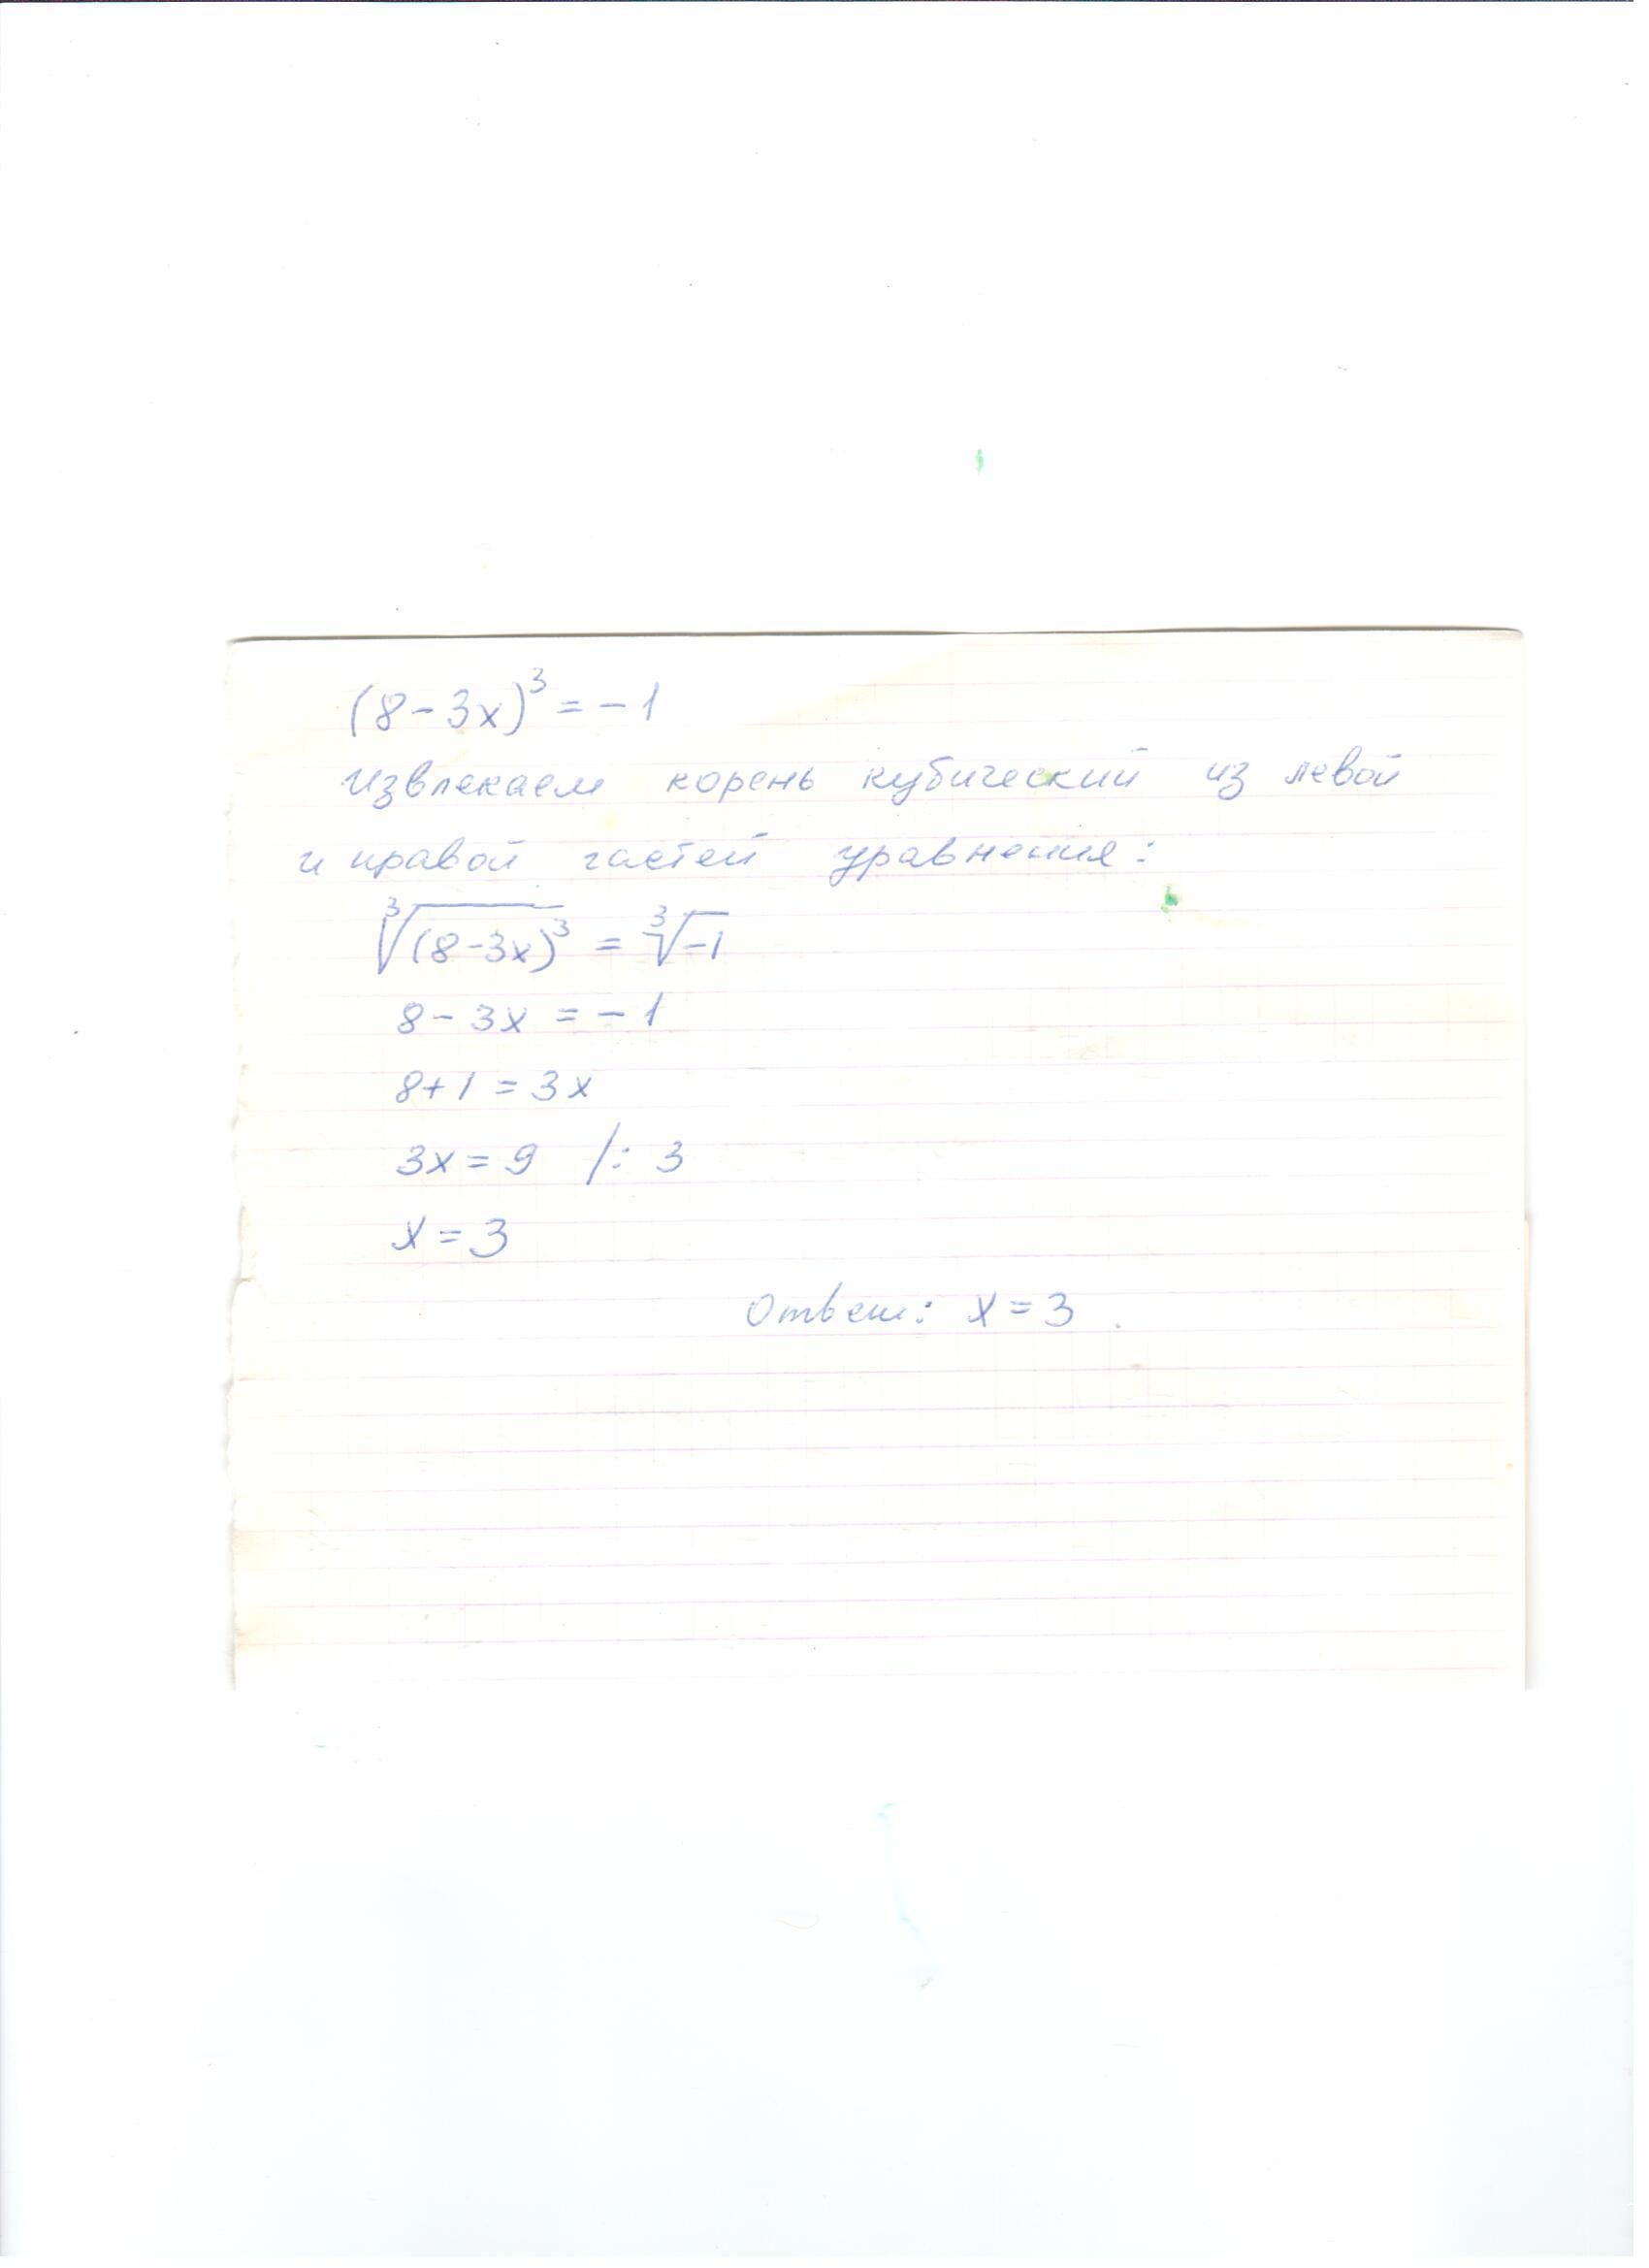 (8-3x)³ = -1
Извлекаем корень кубический из левой
и правой частей уравнения:
∛(8-3x)³ = ∛-1
8 - 3x = -1
8+1 = 3x
3x = 9 /: 3
x = 3
Ответ: x = 3 .